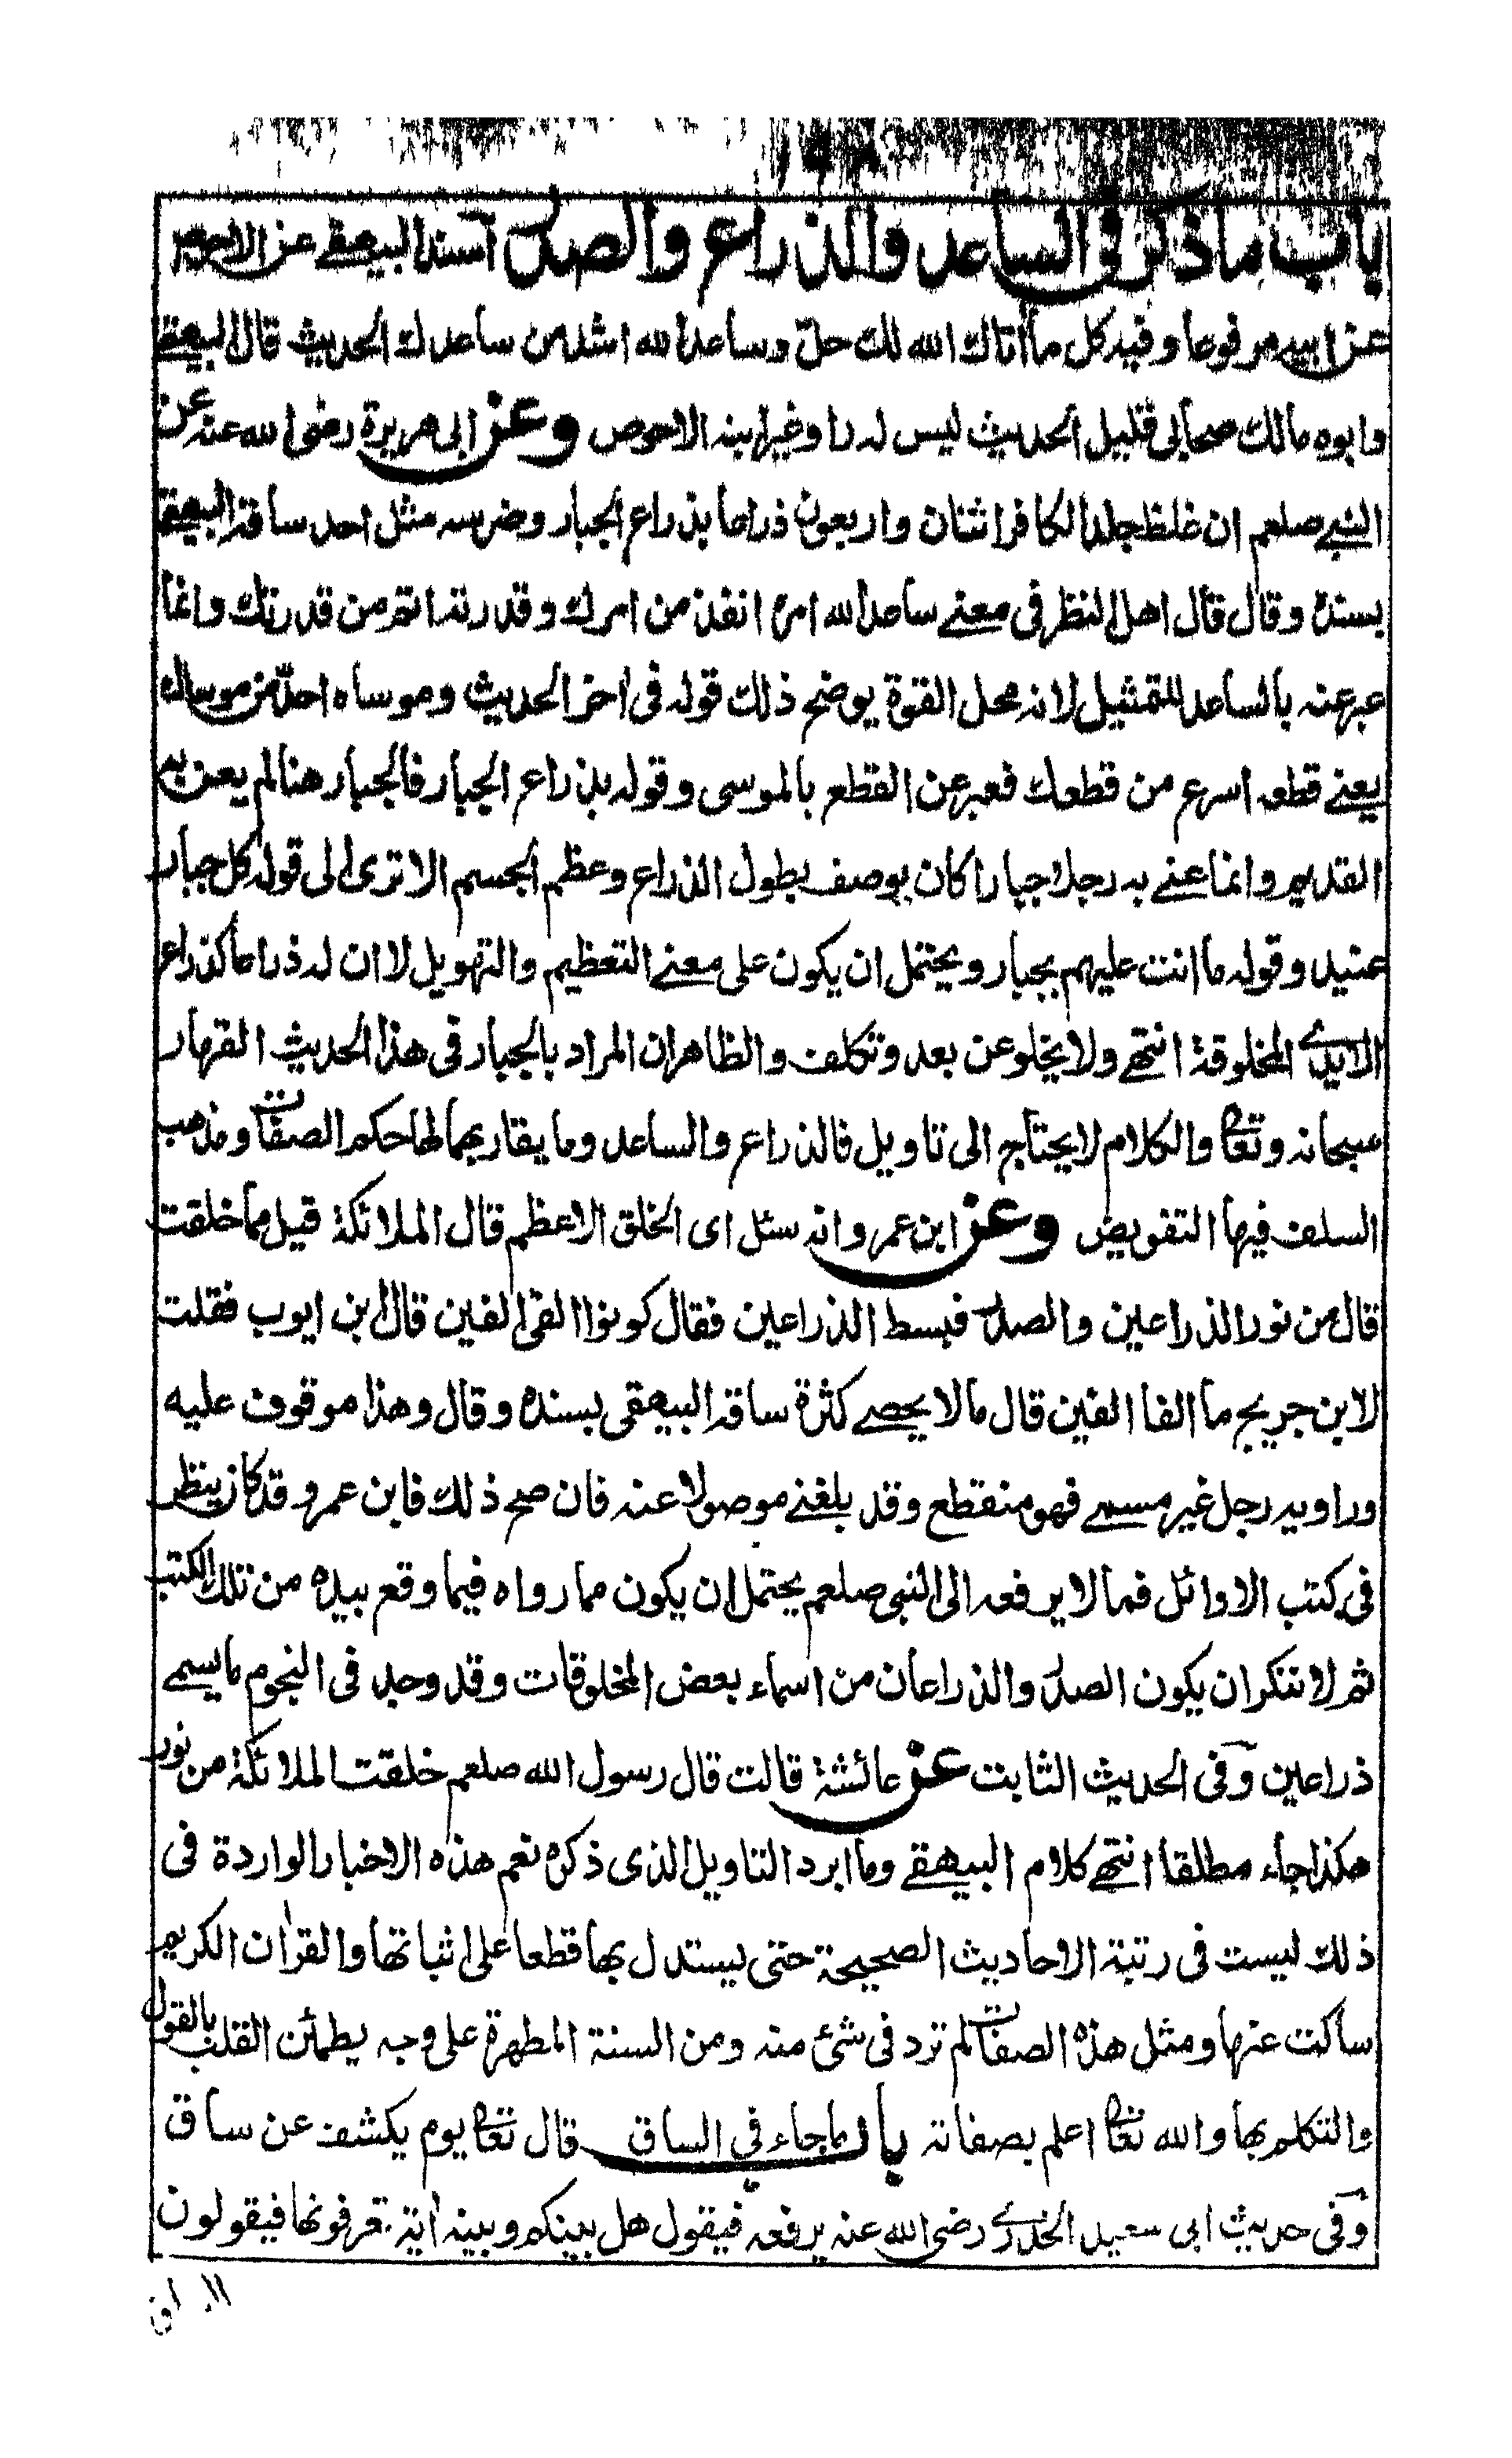 باب ما ذكر فى الساعد والذراع والصدر اسند البيهقے عن الاحوص
عن ابيه مرفوعا وفيه كل ما أتاك الله لك حلّ وساعد الله اشد من ساعدك الحديث قال البيهقے
وابوه مالك صحابى قليل الحديث ليس له راو غير ابنه الاحوص وعن ابى هريرة رضى الله عنه عن
النبے صلعم ان غلظ جلد الكافر اثنان واربعون ذراعا بذراع الجبار وضرسه مثل احد ساقه البيهقے
بسنده وقال قال اهل النظر فى معنے ساعد الله امره انفذ من امرك وقدرته اتم من قدرتك وانما
عبر عنه بالساعد للتمثيل لانه محل القوة يوضح ذلك قوله فى اخر الحديث وموساه احدّ من موساك
يعنے قطعه اسرع من قطعك فعبر عن القطع بالموسى وقوله بذراع الجبار فالجبار هنا لم يعن به
القديم وانما عنے به رجلا جبارا كان يوصف بطول الذراع وعظم الجسم الا ترى الى قوله كل جبار
عنيد وقوله ما انت عليهم بجبار ويحتمل ان يكون على معنے التعظيم والتهويل لا ان له ذراعا كذراع
الايدے المخلوقة انتهے ولا يخلو عن بعد وتكلف والظاهر ان المراد بالجبار فى هذا الحديث القهار
سبحانه وتعالى والكلام لا يحتاج الى تاويل فالذراع والساعد وما يقاربهما لها حكم الصفات ومذهب
السلف فيها التفويض وعن ابن عمرو انه سئل اى الخلق الاعظم قال الملائكة قيل مما خلقت
قال من نور الذراعين والصدر فبسط الذراعين فقال كونوا الفى الفين قال ابن ايوب فقلت
لابن جريج ما الفا الفين قال ما لا يحصے كثرة ساقه البيهقى بسنده وقال وهذا موقوف عليه
وراويه رجل غير مسمے فهو منقطع وقد بلغنے موصولا عنه فان صح ذلك فابن عمرو قد كان ينظر
فى كتب الاوائل فما لا يرفعه الى النبى صلعم يحتمل ان يكون مما رواه فيما وقع بيده من تلك الكتب
ثم لا ننكر ان يكون الصدر والذراعان من اسماء بعض المخلوقات وقد وجد فى النجوم ما يسمے
ذراعين وفى الحديث الثابت عن عائشة قالت قال رسول الله صلعم خلقت الملائكة من نور
هكذا جاء مطلقا انتهے كلام البيهقے وما ابرد التاويل الذى ذكره نعم هذه الاخبار الواردة فى
ذلك ليست فى رتبة الاحاديث الصحيحة حتى يستدل بها قطعا على اثباتها والقرأن الكريم
ساكت عنها ومثل هذه الصفات لم ترد فى شئ منه ومن السنة المطهرة على وجه يطمئن القلب بالقول
والتكلم بها والله تعالى اعلم بصفاته باب ما جاء فى الساق قال تعالى يوم يكشف عن ساق
وفى حديث ابى سعيد الخدرے رضى الله عنه يرفعه فيقول هل بينكم وبينه أية تعرفونها فيقولون